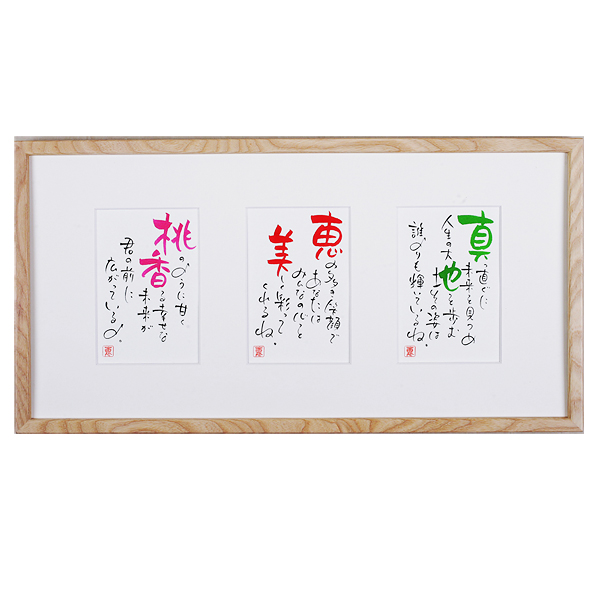 真っ直ぐに
未来を見つめ
人生の大地を歩む
その姿は
誰よりも輝いているね。
恵の多き笑顔で
あなたは
みんなの心を
美しく彩って
くれるね。
桃のように甘く
香る幸せな
未来が
君の前に
広がっているよ。